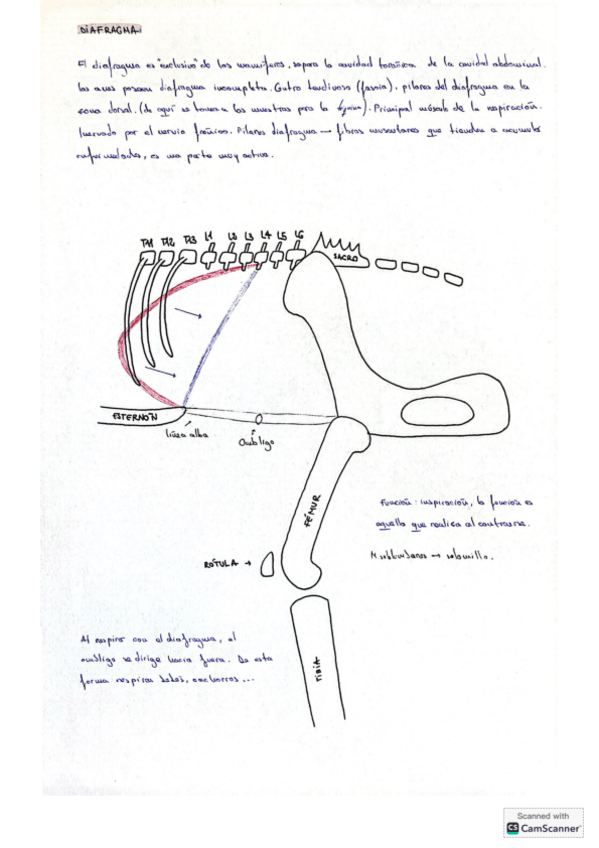 DIAFRAGMA
El diafragma es "exclusivo" de los mamíferos, separa la cavidad torácica de la cavidad abdominal.
las aves poseen diafragma incompleto. Centro tendinoso (fascia), pilares del diafragma en la
zona dorsal. (de aquí se toman las muestras para la). Principal músculo de la respiración.
Inervado por el nervio frénico. Pilares diafragma → fibras musculares que tienden a acumular
enfermedades, es una parte muy activa.
T11 T12 T13 L1 L2 L3 L4 L5 L6
SACRO
ESTERNÓN
línea alba
Ombligo
FÉMUR
Función: inspiración, la función es
aquello que realiza al contraerse.
M. subhumanos → solomillo.
RÓTULA →
Al respirar con el diafragma, el
ombligo se dirige hacia fuera. De esta
forma respiran bebés, cachorros...
TIBIA
Scanned with
CS CamScanner